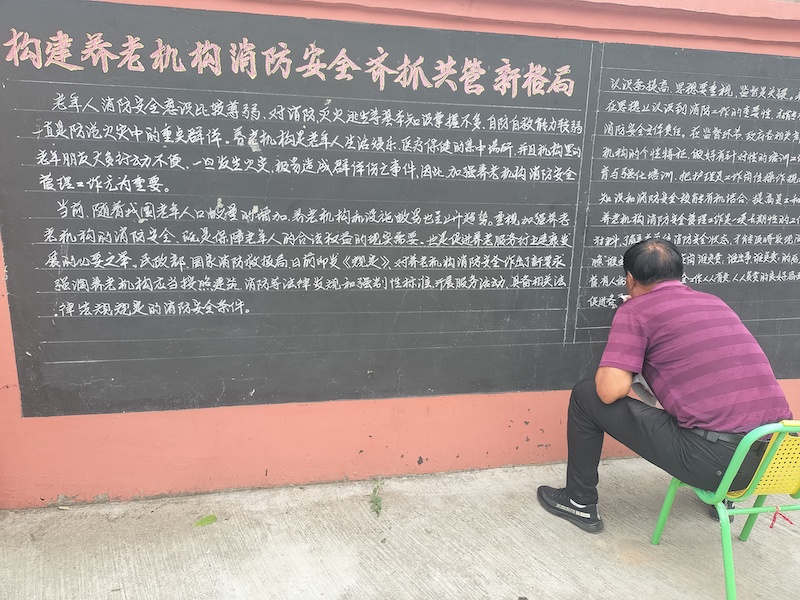 构建养老机构消防安全齐抓共管新格局
老年人消防安全意识比较薄弱,对消防、灭火逃生等基本知识掌握不多,自防自救能力较弱
一直是防范火灾中的重点群体。养老机构是老年人生活娱乐、医疗保健的集中场所,并且机构里的
老年朋友大多行动不便,一旦发生火灾,极易造成群体伤亡事件,因此,加强养老机构消防安全
管理工作尤为重要。
当前,随着我国老年人口数量的增加,养老机构和设施数量也呈上升趋势。重视加强养老
老机构的消防安全,既是保障老年人的合法权益的现实需要,也是促进养老服务行业健康发
展的必要之举。民政部、国家消防救援局,日前印发《规定》,对养老机构消防安全作出了新要求
强调养老机构应当按照建筑、消防等法律发规和强制性标准,开展服务活动,具备相关法
律法规规定的消防安全条件。
认识要提高,思想要重视,监督是关键。
在思想上认识到消防工作的重要性,
消防安全主体责任。在监督环节,政府各相关
机构的个性特征,做好有针对性的培训工
育与强化培训,把护理员工作岗位操作规
知识和消防安全技能有机结合,提高员工
养老机构消防安全管理工作是一项长期性的工作
促进